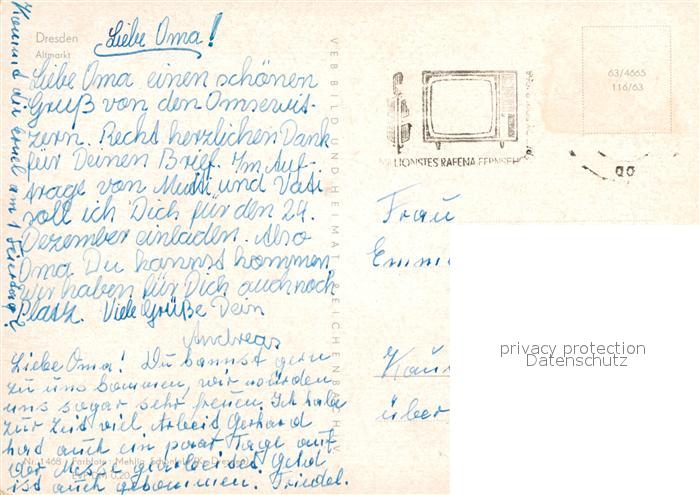 Dresden
Altmarkt
Liebe Oma!
Liebe Oma einen schönen
Gruß von den Omsewit-
zern. Recht herzlichen Dank
für Deinen Brief. Im Auf-
trage von Mutti und Vati
soll ich Dich für den 24.
Dezember einladen. Also
Oma Du kannst kommen,
wir haben für Dich auch noch
Platz. Viele Grüße Dein
Andreas
Liebe Oma! Du kannst gern
zu uns kommen, wir würden
uns sogar sehr freuen. Ich habe
zur Zeit viel Arbeit Gerhard
hat auch ein paar Tage auf
der Messe gearbeitet. Geld
ist auch gekommen. Friedel.
Kommst du erst am 1. Feiertag?
Nr. 1468
VEB BILD UND HEIMAT REICHENB
63/4665
116/63
MILLIONSTES RAFENA FERNSEH
Frau
Emm
über
privacy protection
Datenschutz